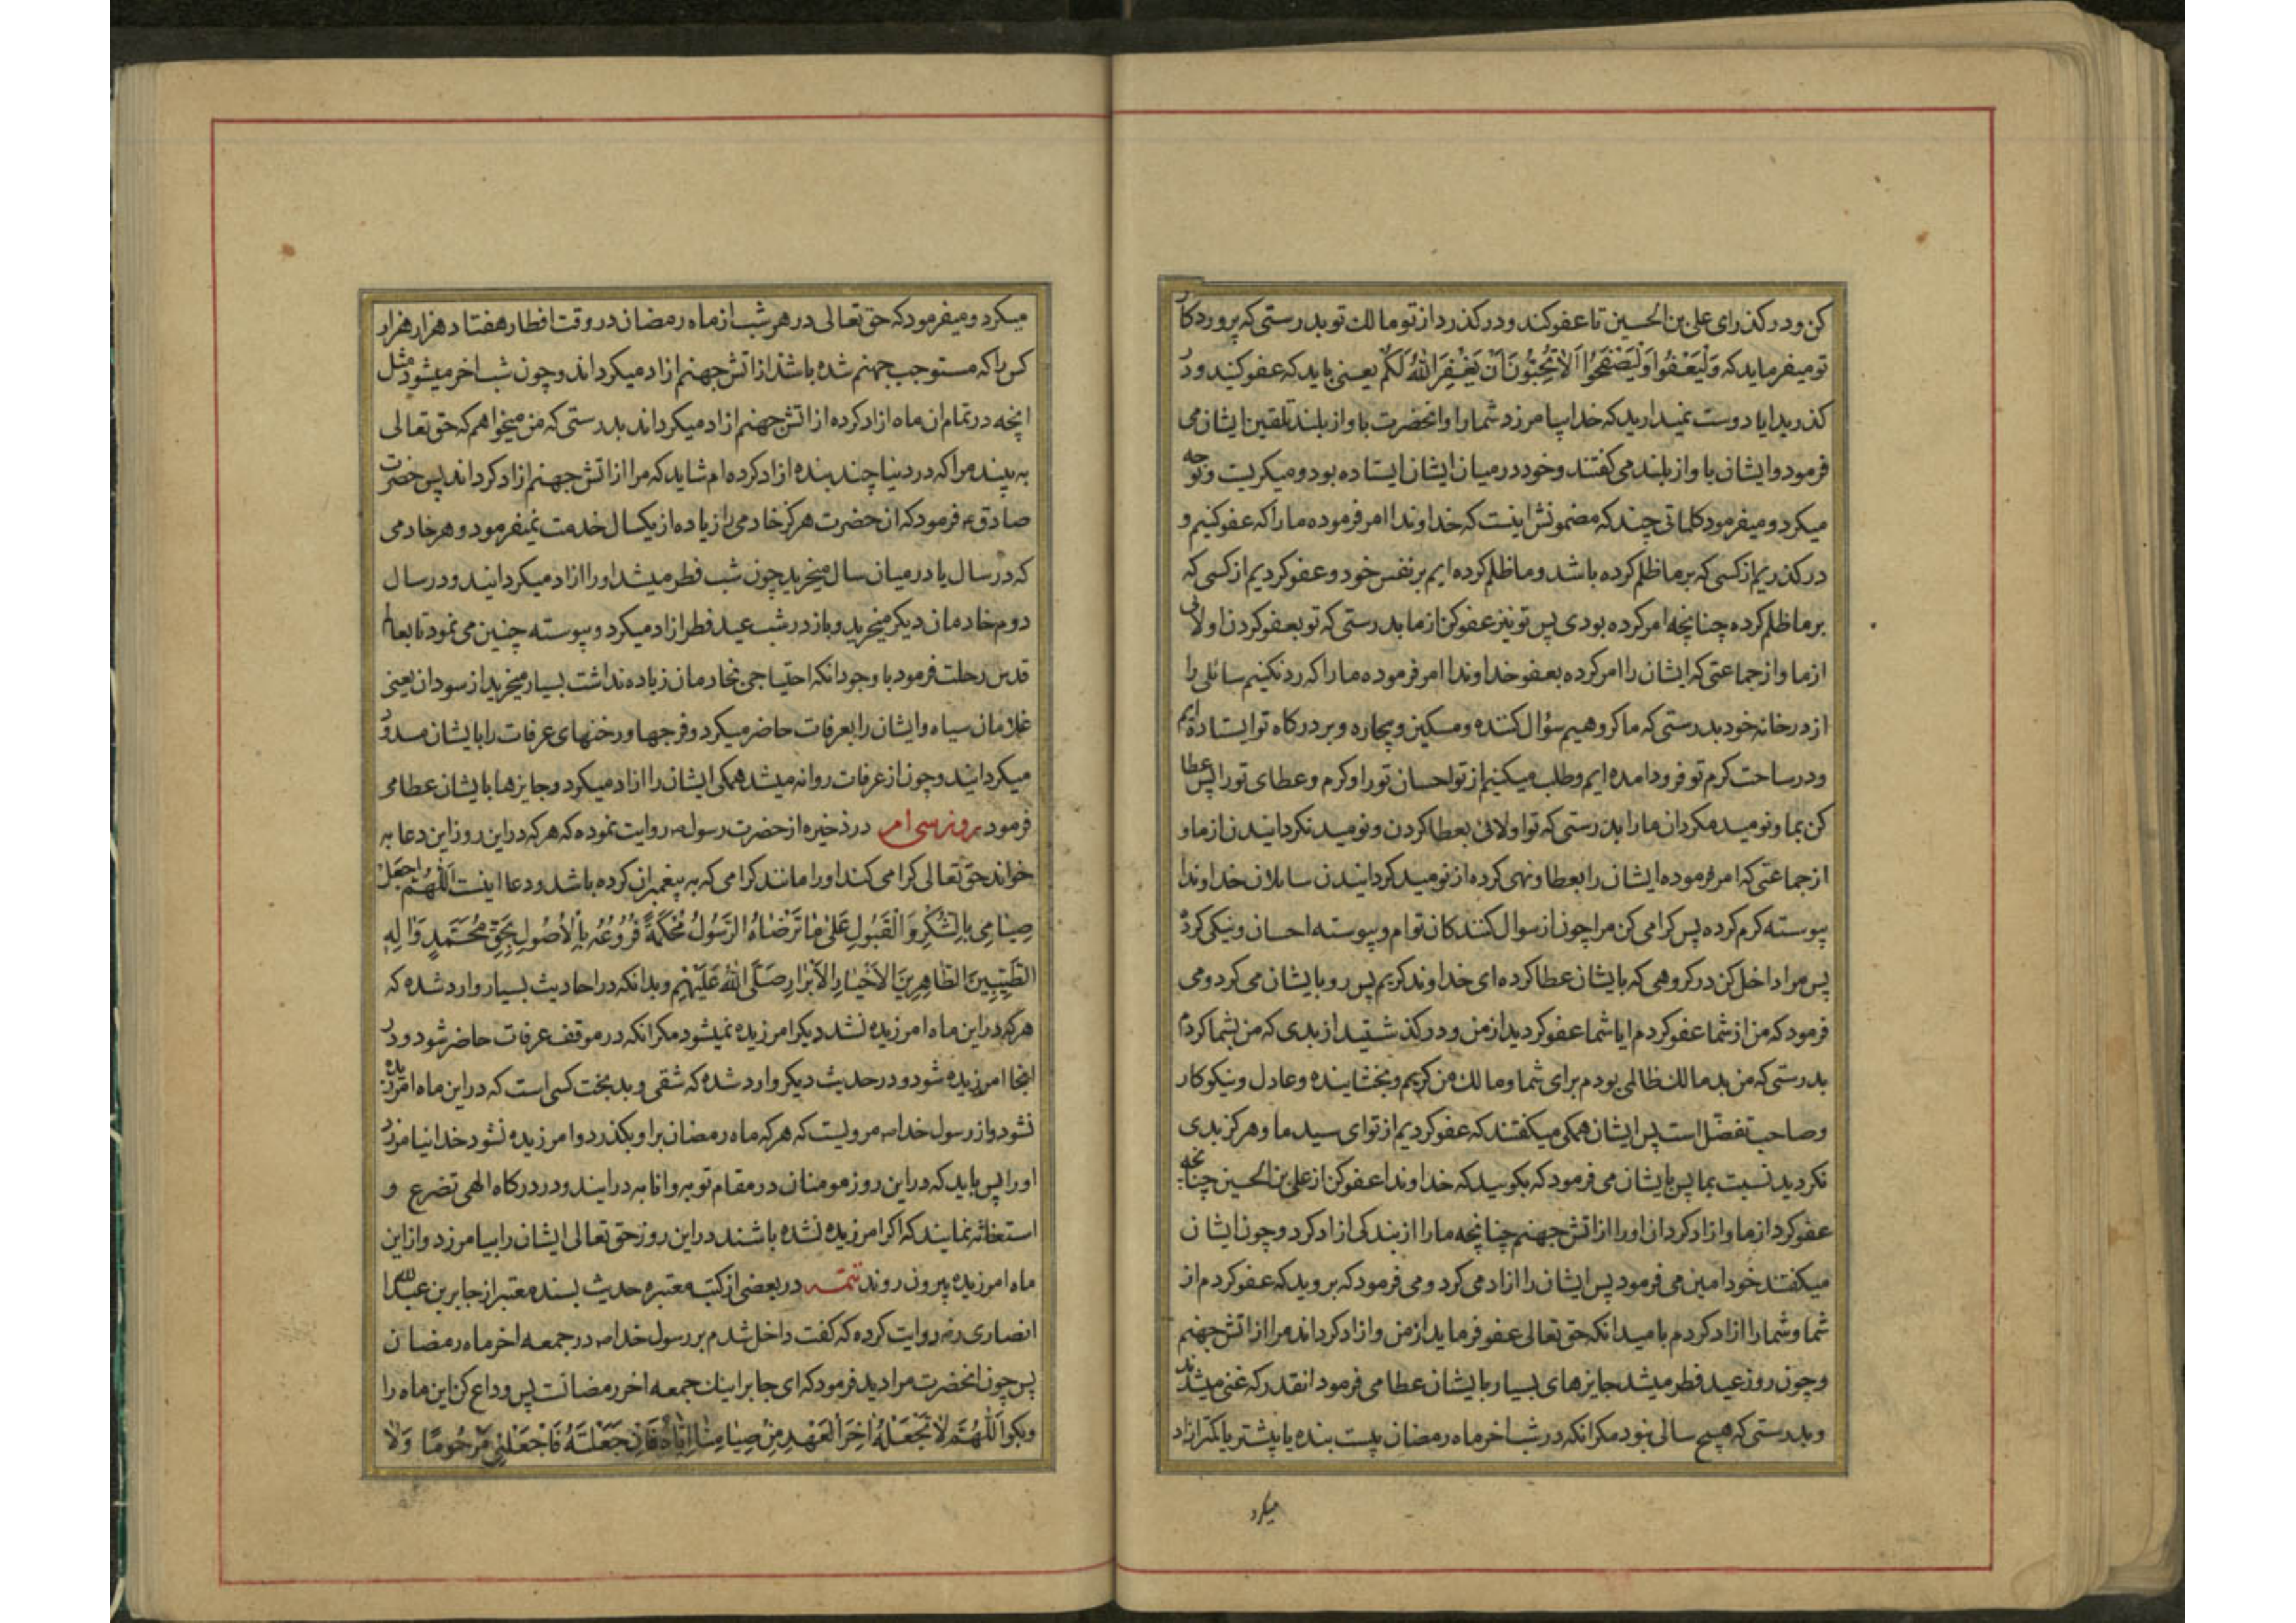 کن و درکذر ای علی بن الحسین تا عفو کند و درکذرد از تو مالك تو بدرستی که پروردکار
تو میفرماید که وَلْیَعْفُوا وَلْیَصْفَحُوا اَلاٰ تُحِبُّونَ اَنْ یَغْفِرَ اللّٰهُ لَکُمْ یعنی باید که عفو کنید و در
کذرید ایا دوست نمیدارید که خدا بیامرزد شما را و انحضرت باواز بلند تلقین ایشان می
فرمود و ایشان باواز بلند می کفتند و خود در میان ایشان ایستاده بود و میکریست و نوحه
میکرد و میفرمود کلماتی چند که مضمونش اینست که خداوندا امر فرموده ما را که عفو کنیم و
درکذریم از کسی که بر ما ظلم کرده باشد و ما ظلم کرده ایم بر نفس خود و عفو کردیم از کسی که
بر ما ظلم کرده چنانچه امر کرده بودی پس تو نیز عفو کن از ما بدرستی که تو بعفو کردن اولائی
از ما و از جماعتی که ایشان را امر کرده بعفو خداوندا امر فرموده ما را که رد نکنیم سائلی را
از درخانه خود بدرستی که ما کروهیم سؤال کننده و مسکین و بیچاره و بر درکاه تو ایستاده ایم
و در ساحت کرم تو فرود امده ایم و طلب میکنیم از تو احسان تو را و کرم و عطای تو را پس عطا
کن بما و نومید مکردان ما را بدرستی که تو اولائی بعطا کردن و نومید نکردانیدن از ما و
از جماعتی که امر فرموده ایشان را بعطا و نهی کرده از نومید کردانیدن سایلان خداوندا
پیوسته کرم کرده پس کرامی کن مرا چون از سوال کنندکان توام و پیوسته احسان و نیکی کرده
پس مرا داخل کن در کروهی که بایشان عطا کرده ای خداوند کریم پس رو بایشان می کرد و می
فرمود که من از شما عفو کردم ایا شما عفو کردید از من و درکذشتید از بدی که من بشما کردم
بدرستی که من بد مالك ظالمی بودم برای شما و مالك من کریم و بخشاینده و عادل و نیکوکار
و صاحب تفضّل است پس ایشان همکی میکفتند که عفو کردیم از تو ای سید ما و هرکز بدی
نکردید نسبت بما پس بایشان می فرمود که بکوئید که خداوندا عفو کن از علی بن الحسین چنانچه
عفو کرد از ما و ازاد کردان او را از اتش جهنم چنانچه ما را از بندکی ازاد کرد و چون ایشان
میکفتند خود امین می فرمود پس ایشان را ازاد می کرد و می فرمود که بروید که عفو کردم از
شما و شما را ازاد کردم بامید انکه حق تعالی عفو فرماید از من و ازاد کرداند مرا از اتش جهنم
و چون روز عید فطر میشد جایزهای بسیار بایشان عطا می فرمود انقدر که غنی میشدند
و بدرستی که هیچ سالی نبود مکر انکه در شب اخر ماه رمضان بیست بنده یا بیشتر یا کمتر ازاد
میکرد
میکرد و میفرمود که حق تعالی در هر شب از ماه رمضان در وقت افطار هفتاد هزار هزار
کس را که مستوجب جهنم شده باشند از اتش جهنم ازاد میکرداند و چون شب اخر میشود مثل
انچه در تمام ان ماه ازاد کرده از اتش جهنم ازاد میکرداند بدرستی که من میخواهم که حق تعالی
به بیند مرا که در دنیا چند بنده ازاد کرده ام شاید که مرا از اتش جهنم ازاد کرداند پس حضرت
صادق ع فرمود که ان حضرت هرکز خادمی را زیاده از یکسال خدمت نمیفرمود و هر خادمی
که در سال یا در میان سال میخرید چون شب فطر میشد او را ازاد میکردانید و در سال
دوم خادمان دیکر میخرید و باز در شب عید فطر ازاد میکرد و پیوسته چنین می نمود تا بعالم
قدس رحلت فرمود با وجود انکه احتیاجی بخادمان زیاده نداشت بسیار میخرید از سودان یعنی
غلامان سیاه و ایشان را بعرفات حاضر میکرد و فرجها و رخنهای عرفات را بایشان مسدود
میکردانید و چون از عرفات روانه میشد همکی ایشان را ازاد میکرد و جایزها بایشان عطا می
فرمود روز سی ام در ذخیره از حضرت رسول ص روایت نموده که هر که در این روز این دعا به
خواند حق تعالی کرامی کند او را مانند کرامی که به پیغمبران کرده باشد و دعا اینست اَللّٰهُمَّ اجْعَلْ
صِیٰامِی بِالشُّکْرِ وَ الْقَبُولِ عَلیٰ مٰا تَرْضٰاهُ الرَّسُولُ مُحْکَمَةً فُرُوعُهُ بِالْاُصُولِ بِحَقِّ مُحَمَّدٍ وَ اٰلِهِ
الطَّیِّبِینَ الطّٰاهِرِینَ الْاَخْیٰارِ الْاَبْرٰارِ صَلَّی اللّٰهُ عَلَیْهِمْ و بدانکه در احادیث بسیار وارد شده که
هر که در این ماه امرزیده نشد دیکر امرزیده نمیشود مکر انکه در موقف عرفات حاضر شود و در
انجا امرزیده شود و در حدیث دیکر وارد شده که شقی و بدبخت کسی است که در این ماه امرزیده
نشود و از رسول خدا ص مرویست که هر که ماه رمضان بر او بکذرد و امرزیده نشود خدا نیامرزد
او را پس باید که در این روز مومنان در مقام توبه و انابه درایند و در درکاه الهی تضرع و
استغاثه نمایند که اکر امرزیده نشده باشند در این روز حق تعالی ایشان را بیامرزد و از این
ماه امرزیده بیرون روند تتمه در بعضی از کتب معتبره حدیث بسند معتبر از جابر بن عبد الله
انصاری رض روایت کرده که کفت داخل شدم بر رسول خدا ص در جمعه اخر ماه رمضان
پس چون انحضرت مرا دید فرمود که ای جابر اینك جمعه اخر رمضانست پس وداع کن این ماه را
و بکو اَللّٰهُمَّ لاٰ تَجْعَلْهُ اٰخِرَ الْعَهْدِ مِنْ صِیٰامِنٰا اِیّٰاهُ فَاِنْ جَعَلْتَهُ فَاجْعَلْنِی مَرْحُومًا وَلاٰ